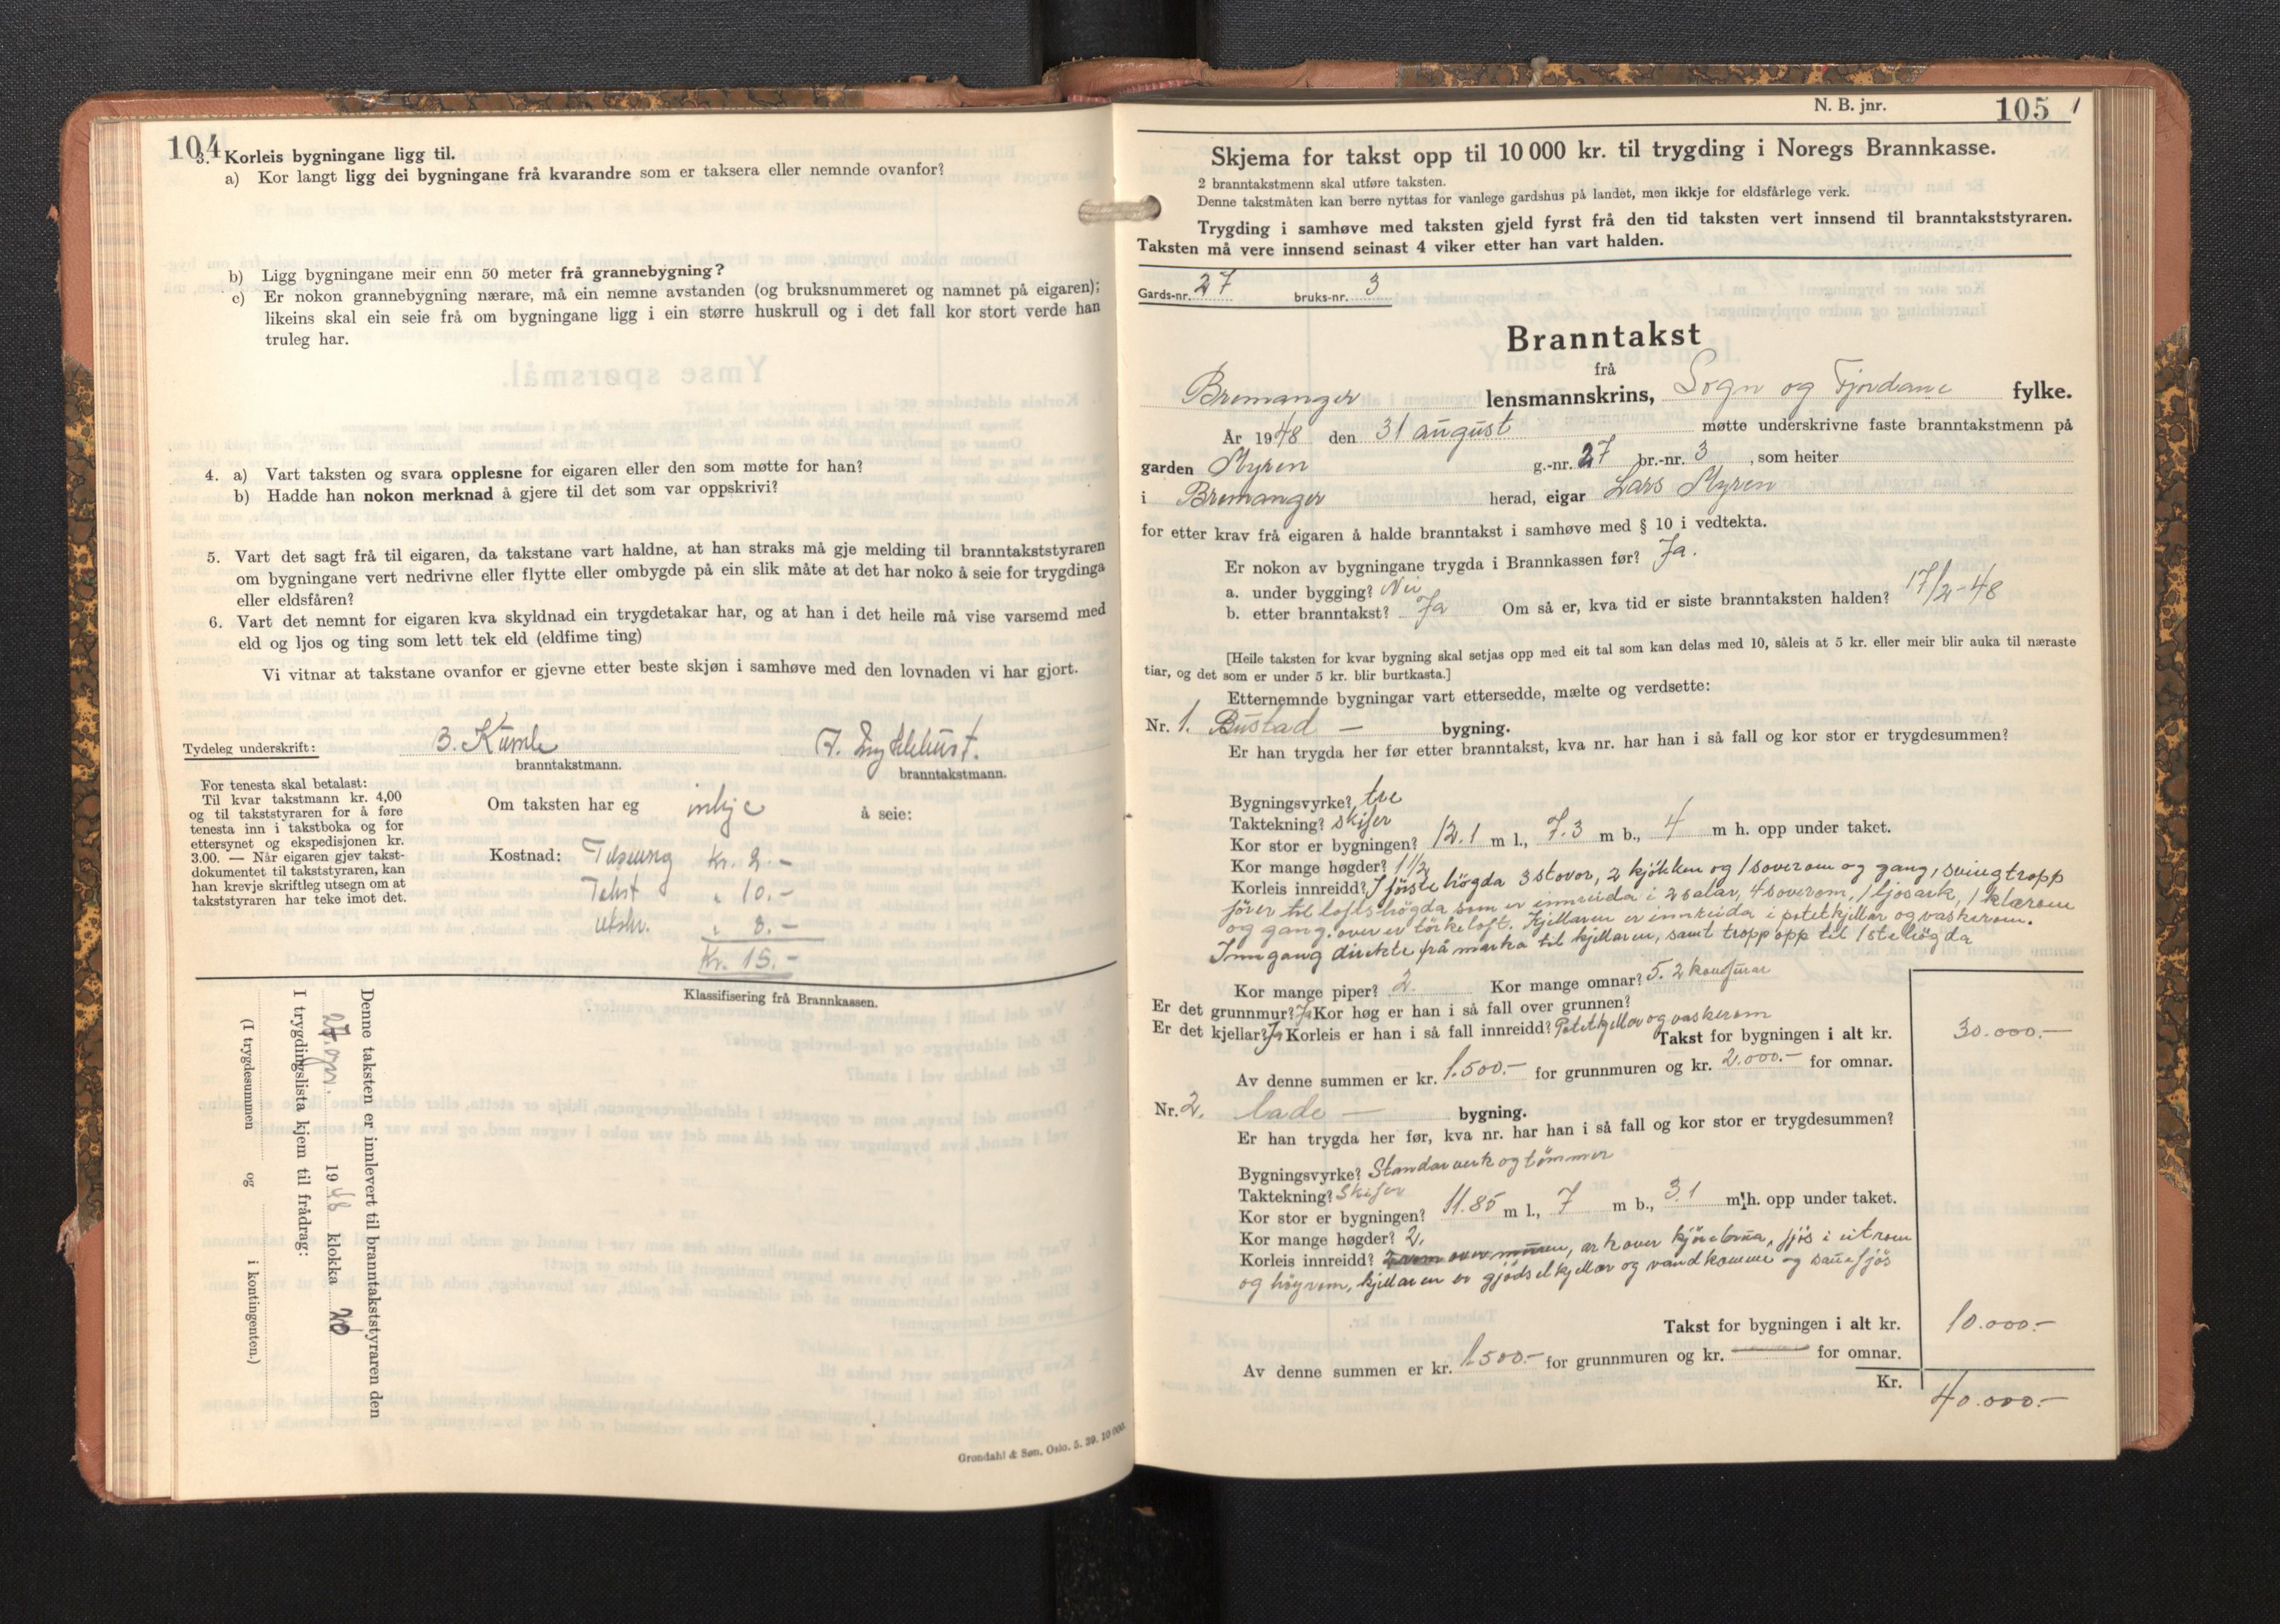 104
3. Korleis bygningane ligg til.
a) Kor langt ligg dei bygningane frå kvarandre som er taksera eller nemnde ovanfor?
b) Ligg bygningane meir enn 50 meter frå grannebygning?
c) Er nokon grannebygning nærare, må ein nemne avstanden (og bruksnummeret og namnet på eigaren);
likeins skal ein seie frå om bygningane ligg i ein større huskrull og i det fall kor stort verde han
truleg har.
4. a) Vart taksten og svara opplesne for eigaren eller den som møtte for han?
b) Hadde han nokon merknad å gjere til det som var oppskrivi?
5. Vart det sagt frå til eigaren, da takstane vart haldne, at han straks må gje melding til branntakststyraren
om bygningane vert nedrivne eller flytte eller ombygde på ein slik måte at det har noko å seie for trygdinga
eller eldsfåren?
6. Vart det nemnt for eigaren kva skyldnad ein trygdetakar har, og at han i det heile må vise varsemd med
eld og ljos og ting som lett tek eld (eldfime ting)
Vi vitnar at takstane ovanfor er gjevne etter beste skjøn i samhøve med den lovnaden vi har gjort.
Tydeleg underskrift: B. Kumle
branntakstmann. branntakstmann.
For tenesta skal betalast:
Til kvar takstmann kr. 4,00
og til takststyraren for å føre
tenesta inn i takstboka og for
ettersynet og ekspedisjonen kr.
3.00. — Når eigaren gjev takst-
dokumentet til takststyraren, kan
han krevje skriftleg utsegn om at
takststyraren har teke imot det.
Om taksten har eg inkje å seie:
Kostnad: Tilsining kr. 2.-
Takst " 10.-
utskr. " 3.-
Kr. 15.-
Klassifisering frå Brannkassen.
Denne taksten er innlevert til branntakststyraren den
1948 klokka 20
I trygdingslista kjem til frådrag:
(I trygdesummen og i kontingenten.)
Grøndahl & Søn. Oslo. 5. 39. 10 000.
N. B. jnr. 105
Skjema for takst opp til 10 000 kr. til trygding i Noregs Brannkasse.
2 branntakstmenn skal utføre taksten.
Denne takstmåten kan berre nyttas for vanlege gardshus på landet, men ikkje for eldsfårlege verk.
Trygding i samhøve med taksten gjeld fyrst frå den tid taksten vert innsend til branntakststyraren.
Taksten må vere innsend seinast 4 viker etter han vart halden.
Gards-nr. 27 bruks-nr. 3
Branntakst
frå
Bremanger lensmannskrins, Sogn og Fjordane fylke.
År 1948 den 31 august møtte underskrivne faste branntakstmenn på
garden Myren g.-nr. 27 br.-nr. 3, som heiter
i Bremanger herad, eigar Lars Myren
for etter krav frå eigaren å halde branntakst i samhøve med § 10 i vedtekta.
Er nokon av bygningane trygda i Brannkassen før? Ja.
a. under bygging? Nei
b. etter branntakst? Ja Om så er, kva tid er siste branntaksten halden? 17/2-48
[Heile taksten for kvar bygning skal setjas opp med eit tal som kan delas med 10, såleis at 5 kr. eller meir blir auka til næraste
tiar, og det som er under 5 kr. blir burtkasta.]
Etternemnde bygningar vart ettersedde, mælte og verdsette:
Nr. 1. Bustad — bygning.
Er han trygda her før etter branntakst, kva nr. har han i så fall og kor stor er trygdesummen?
Bygningsvyrke? tre
Taktekning? skifer
Kor stor er bygningen? 12.1 m l., 7.3 m b., 4 m h. opp under taket.
Kor mange høgder? 1 1/2
Korleis innreidd? I første högda 3 stovor, 2 kjökken og 1 soverom og gang, svingtropp
fører til loftshögda som er innreida i 2 salar, 4 soverom, 1 ljosark, 1 klærom
og gang. over er törkeloft. Kjellaren er innreida i potetkjellar og vaskerom.
Inngang direkte frå marka til kjellaren, samt tropp opp til 1ste högda
Kor mange piper? 2. Kor mange omnar? 5. 2 komfurar
Er det grunnmur? Ja Kor høg er han i så fall over grunnen?
Er det kjellar? Ja Korleis er han i så fall innreidd? Potetkjellar og vaskerom
Takst for bygningen i alt kr. 30.000.-
Av denne summen er kr. 1.500.- for grunnmuren og kr. 2.000.- for omnar.
Nr. 2. lade — bygning.
Er han trygda her før, kva nr. har han i så fall og kor stor er trygdesummen?
Bygningsvyrke? Standarverk og tömmer
Taktekning? Skifer
Kor stor er bygningen? 11.85 m l., 7 m b., 3.1 m h. opp under taket.
Kor mange høgder? 2.
Korleis innreidd? ark over kjörebrua, fjös i eit rom
og höyrom, kjellaren er gjödselkjellar og vandkomme og sauefjös
Takst for bygningen i alt kr. 10.000.-
Av denne summen er kr. 1.500.- for grunnmuren og kr. — for omnar.
Kr. 40.000.-